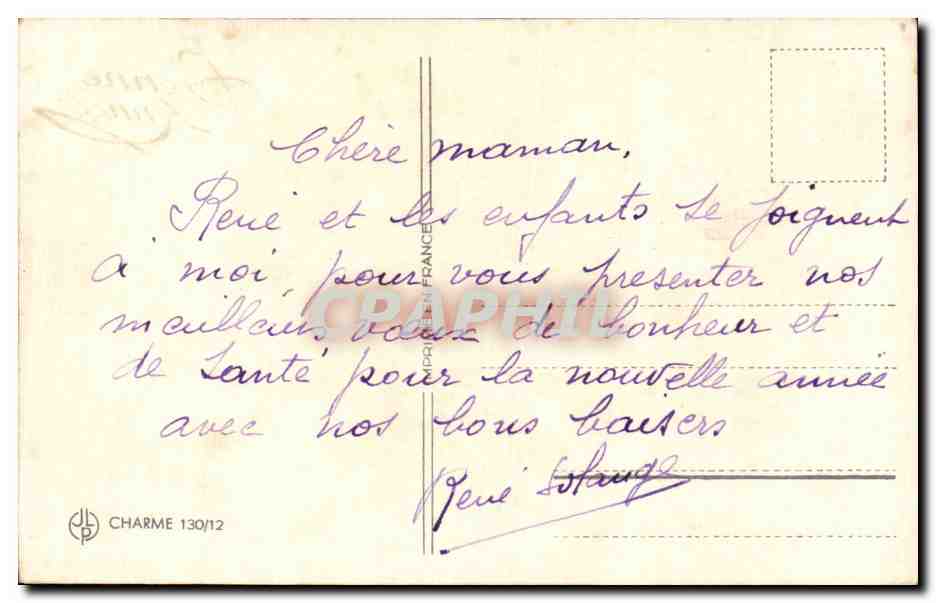 Chère maman,
René et les enfants se joignent
à moi pour vous presenter nos
meilleurs vœux de bonheur et
de santé pour la nouvelle année
avec nos bons baisers
René Solange
IMPRIMÉ EN FRANCE
CPAPHIL
JLP CHARME 130/12